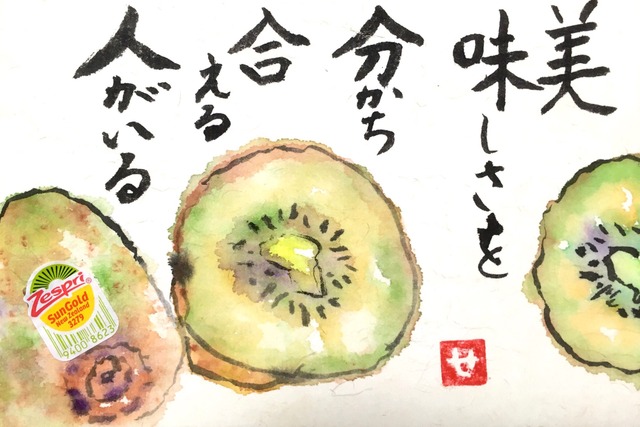 美味しさを
分かち
合える
人がいる
Zespri®
SunGold
New Zealand
3279
9400 8623